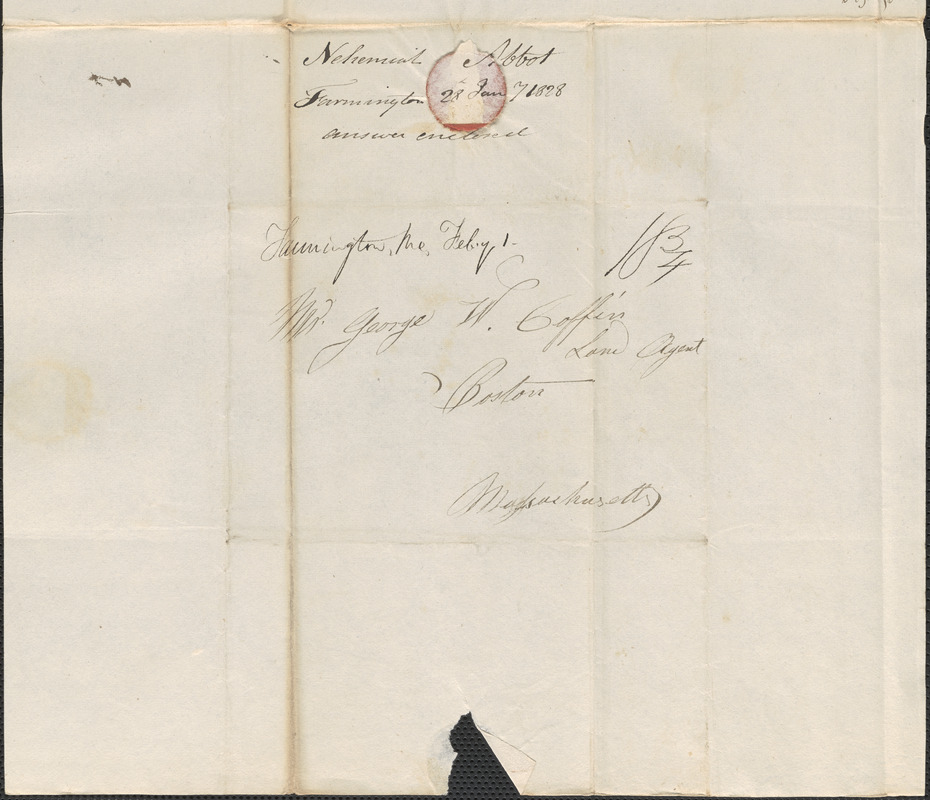 Nehemiah Abbot
Farmington 28 Jany 1828
answer enclosed
Farmington, Me, Feby, 1-
18 3/4
Mr. George W. Coffin
Land Agent
Boston
Massachusetts